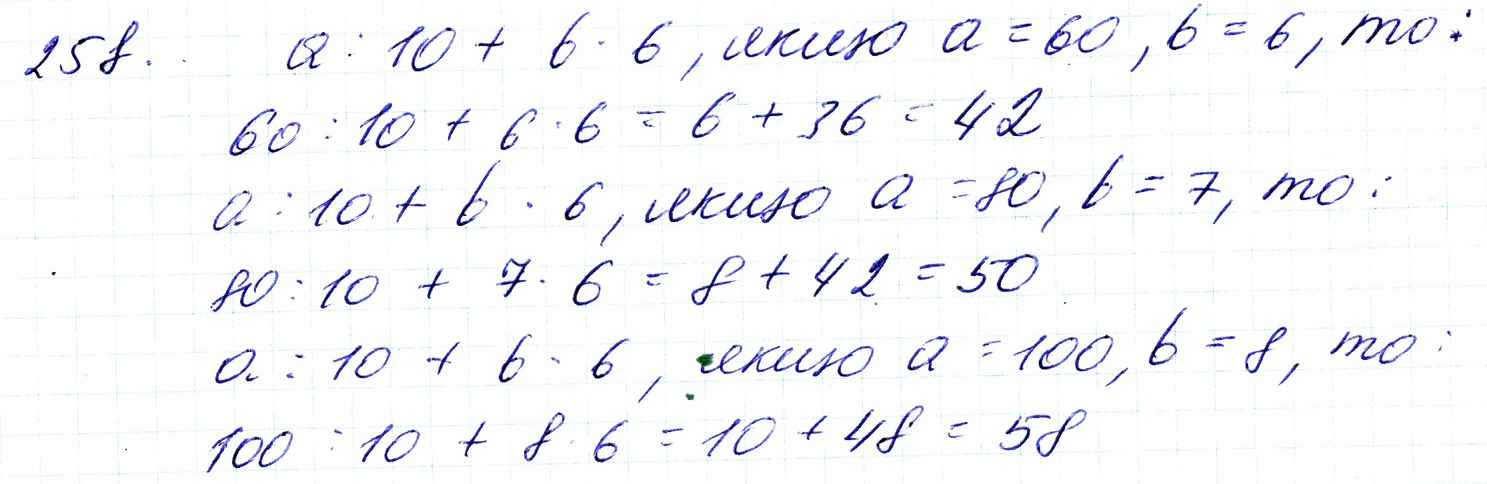 258. a : 10 + b · 6, якщо a = 60, b = 6, то:
60 : 10 + 6 · 6 = 6 + 36 = 42
a : 10 + b · 6, якщо a = 80, b = 7, то:
80 : 10 + 7 · 6 = 8 + 42 = 50
a : 10 + b · 6, якщо a = 100, b = 8, то:
100 : 10 + 8 · 6 = 10 + 48 = 58